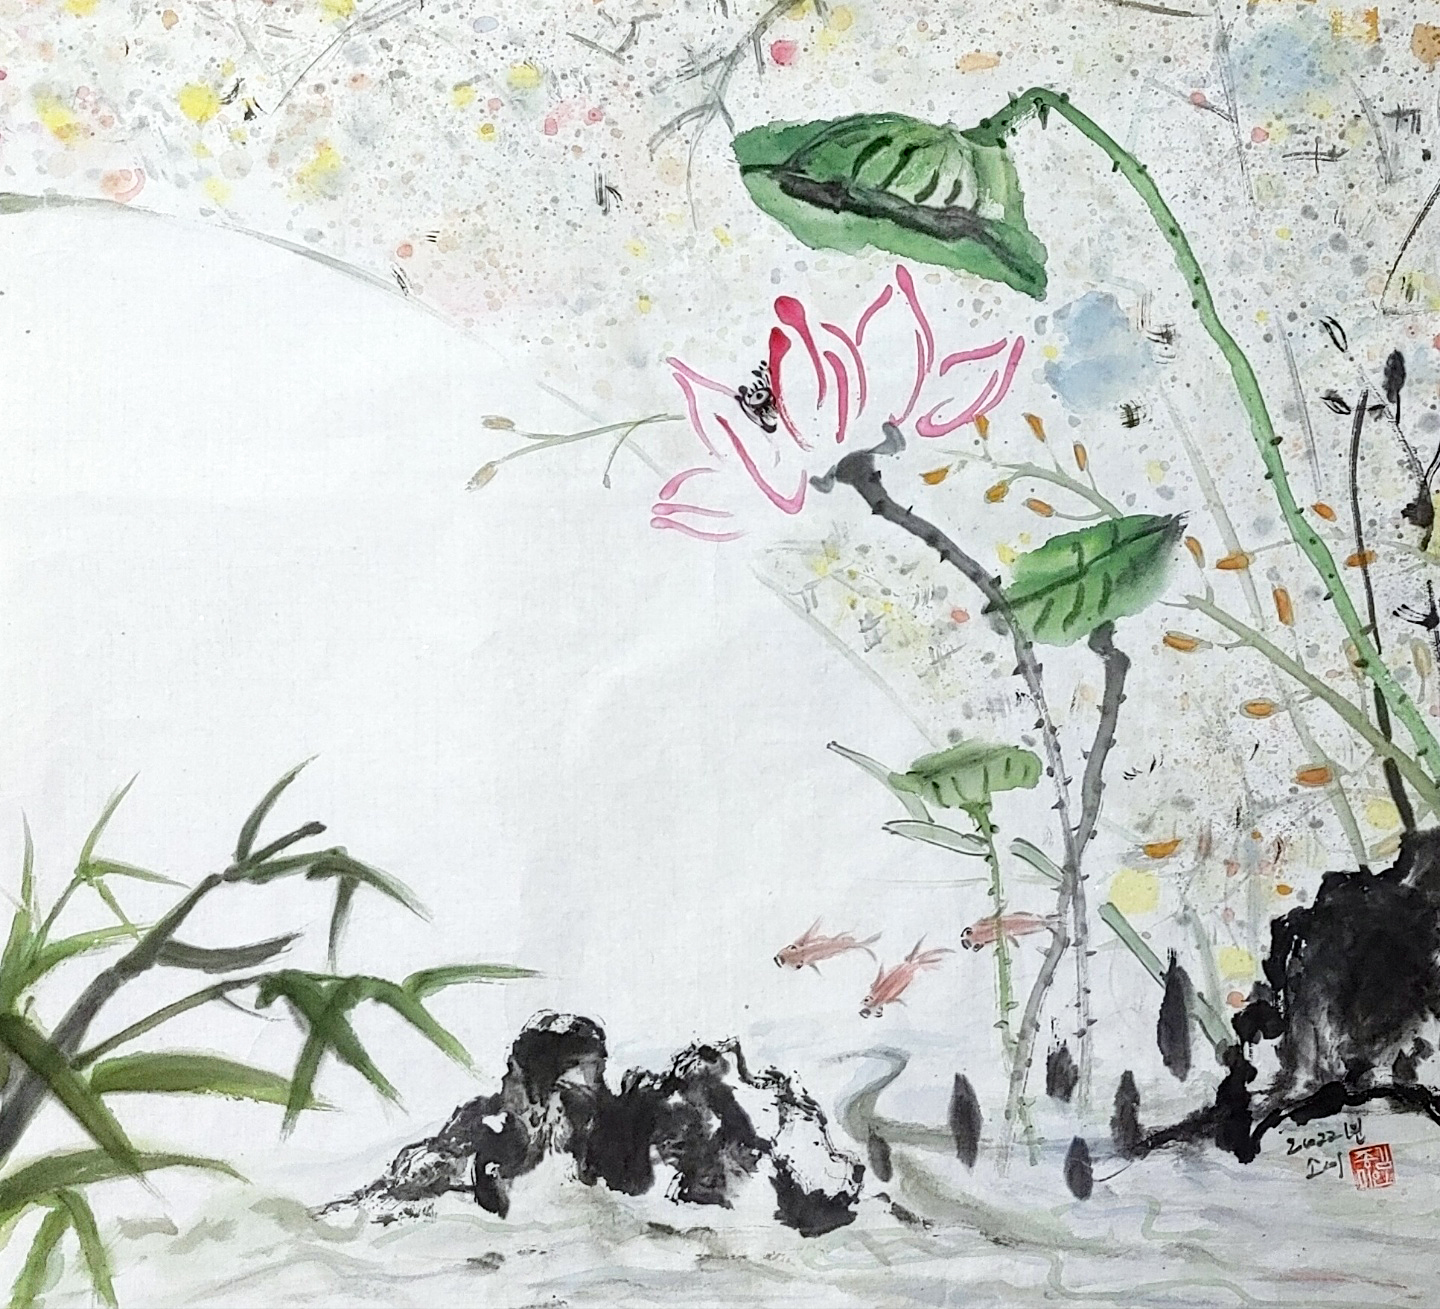 2022년
소이